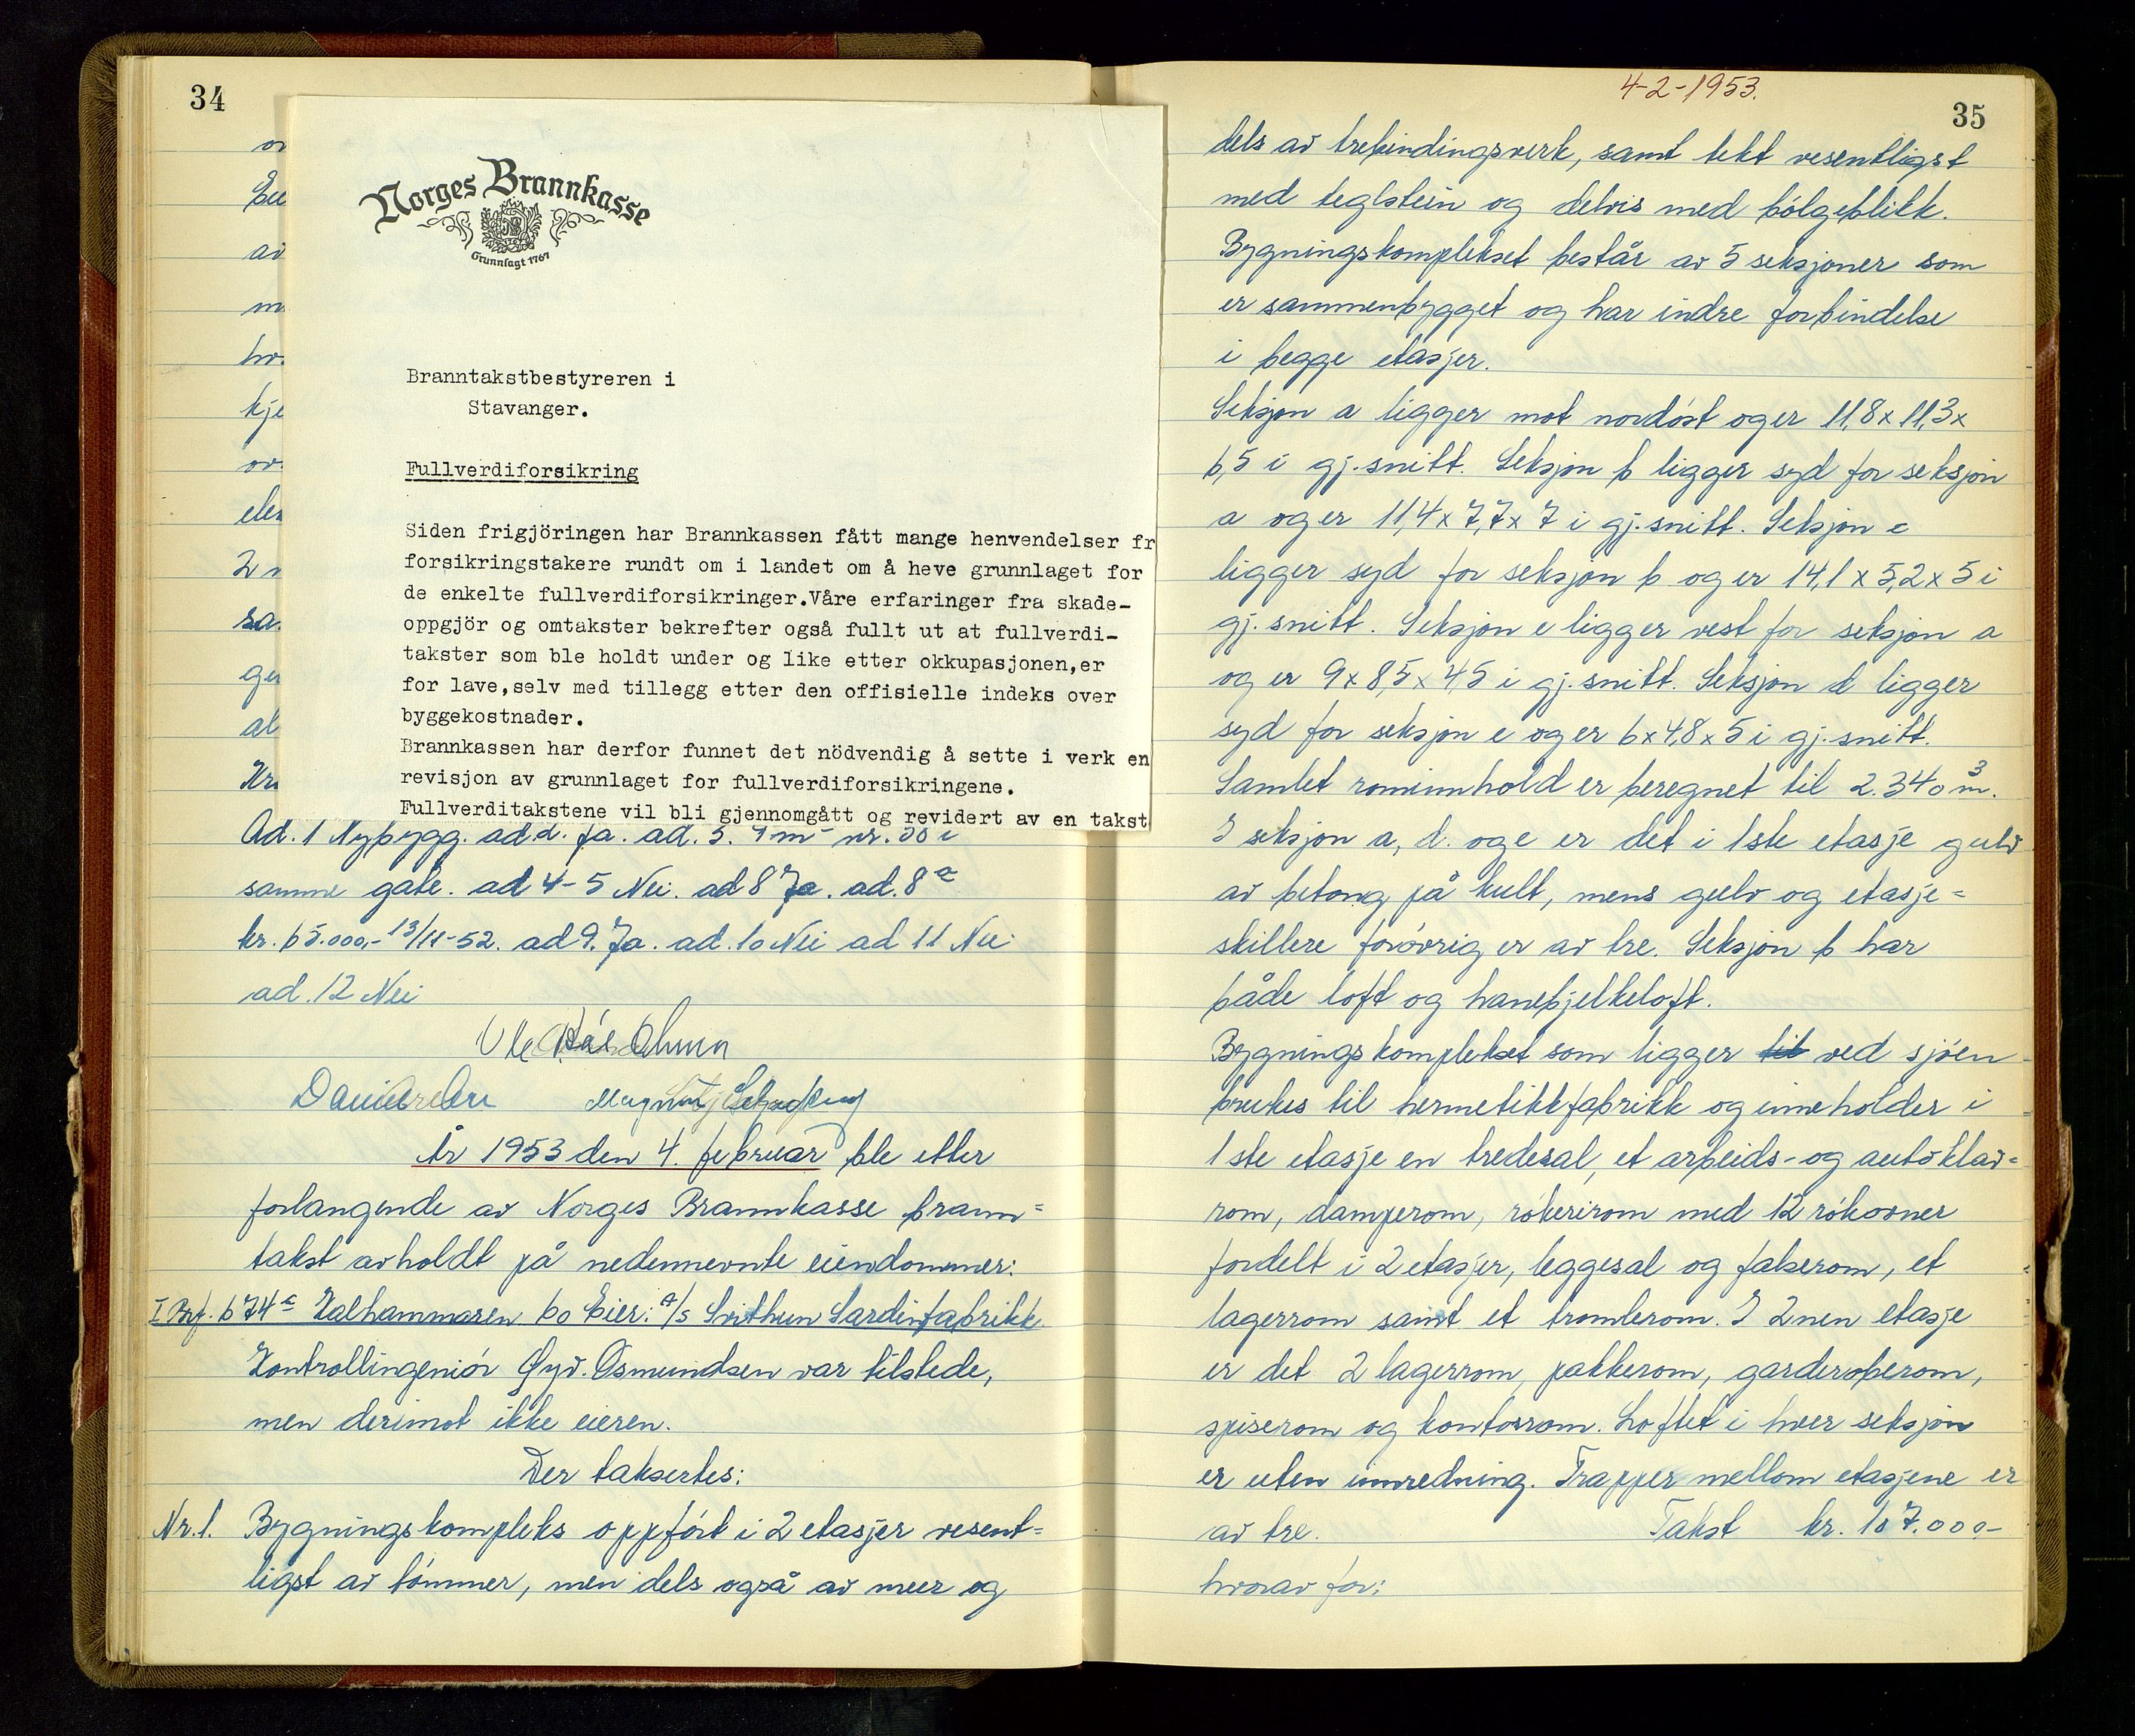 34
Norges Brannkasse
Grunnlagt 1767
Branntakstbestyreren i
Stavanger.
Fullverdiforsikring
Siden frigjöringen har Brannkassen fått mange henvendelser fr
forsikringstakere rundt om i landet om å heve grunnlaget for
de enkelte fullverdiforsikringer.Våre erfaringer fra skade-
oppgjör og omtakster bekrefter også fullt ut at fullverdi-
takster som ble holdt under og like etter okkupasjonen,er
for lave,selv med tillegg etter den offisielle indeks over
byggekostnader.
Brannkassen har derfor funnet det nödvendig å sette i verk en
revisjon av grunnlaget for fullverdiforsikringene.
Fullverditakstene vil bli gjennomgått og revidert av en takst
Ad. 1 Nybygg. ad 2. Ja. ad. 3. 4 m nr. 38 i
samme gate. ad 4-5 Nei. ad 8 Ja. ad. 8 a
kr. 65.000,- 13/11-52. ad 9. Ja. ad. 10 Nei ad 11 Nei
ad. 12 Nei
År 1953 den 4. februar ble etter
forlangende av Norges Brannkasse brann=
takst avholdt på nedennevnte eiendommer:
I Brf. 674 c Kalhammaren 60 Eier: A/S Svithun Sardinfabrikk
Kontrollingeniör Gyv. Osmundsen var tilstede,
men derimot ikke eieren.
Der taksertes:
Nr. 1. Bygningskompleks oppfört i 2 etasjer vesent=
ligst av tömmer, men dels også av mur og
4-2-1953.
35
dels av trebindingsverk, samt tekt vesentligst
med teglstein og delvis med bölgeblikk.
Bygningskomplekset består av 5 seksjoner som
er sammenbygget og har indre forbindelse
i begge etasjer.
Seksjon a ligger mot nordöst og er 11,8 x 11,3 x
6,5 i gj.snitt. Seksjon b ligger syd for seksjon
a og er 11,4 x 7,7 x 7 i gj.snitt. Seksjon c
ligger syd for seksjon b og er 14,1 x 5,2 x 5 i
gj.snitt. Seksjon e ligger vest for seksjon a
og er 9 x 8,5 x 4,5 i gj.snitt. Seksjon d ligger
syd for seksjon e og er 6 x 4,8 x 5 i gj.snitt.
Samlet rominnhold er beregnet til 2.340 m³.
I seksjon a, d. og e er det i 1ste etasje gulv
av betong på kult, mens gulv og etasje=
skillere forövrig er av tre. Seksjon b har
både loft og hanebjelkeloft.
Bygningskomplekset som ligger til ved sjöen
brukes til hermetikkfabrikk og inneholder i
1ste etasje en tredesal, et arbeids- og autoklav=
rom, damperom, rökerirom med 12 rökovner
fordelt i 2 etasjer, leggesal og falserom, et
lagerrom samt et tromlerom. I 2nen etasje
er det 2 lagerrom, pakkerom, garderoberom,
spiserom og kontorrom. Loftet i hver seksjon
er uten innredning. Trapper mellom etasjene er
av tre. Takst kr. 107.000-
hvorav for: